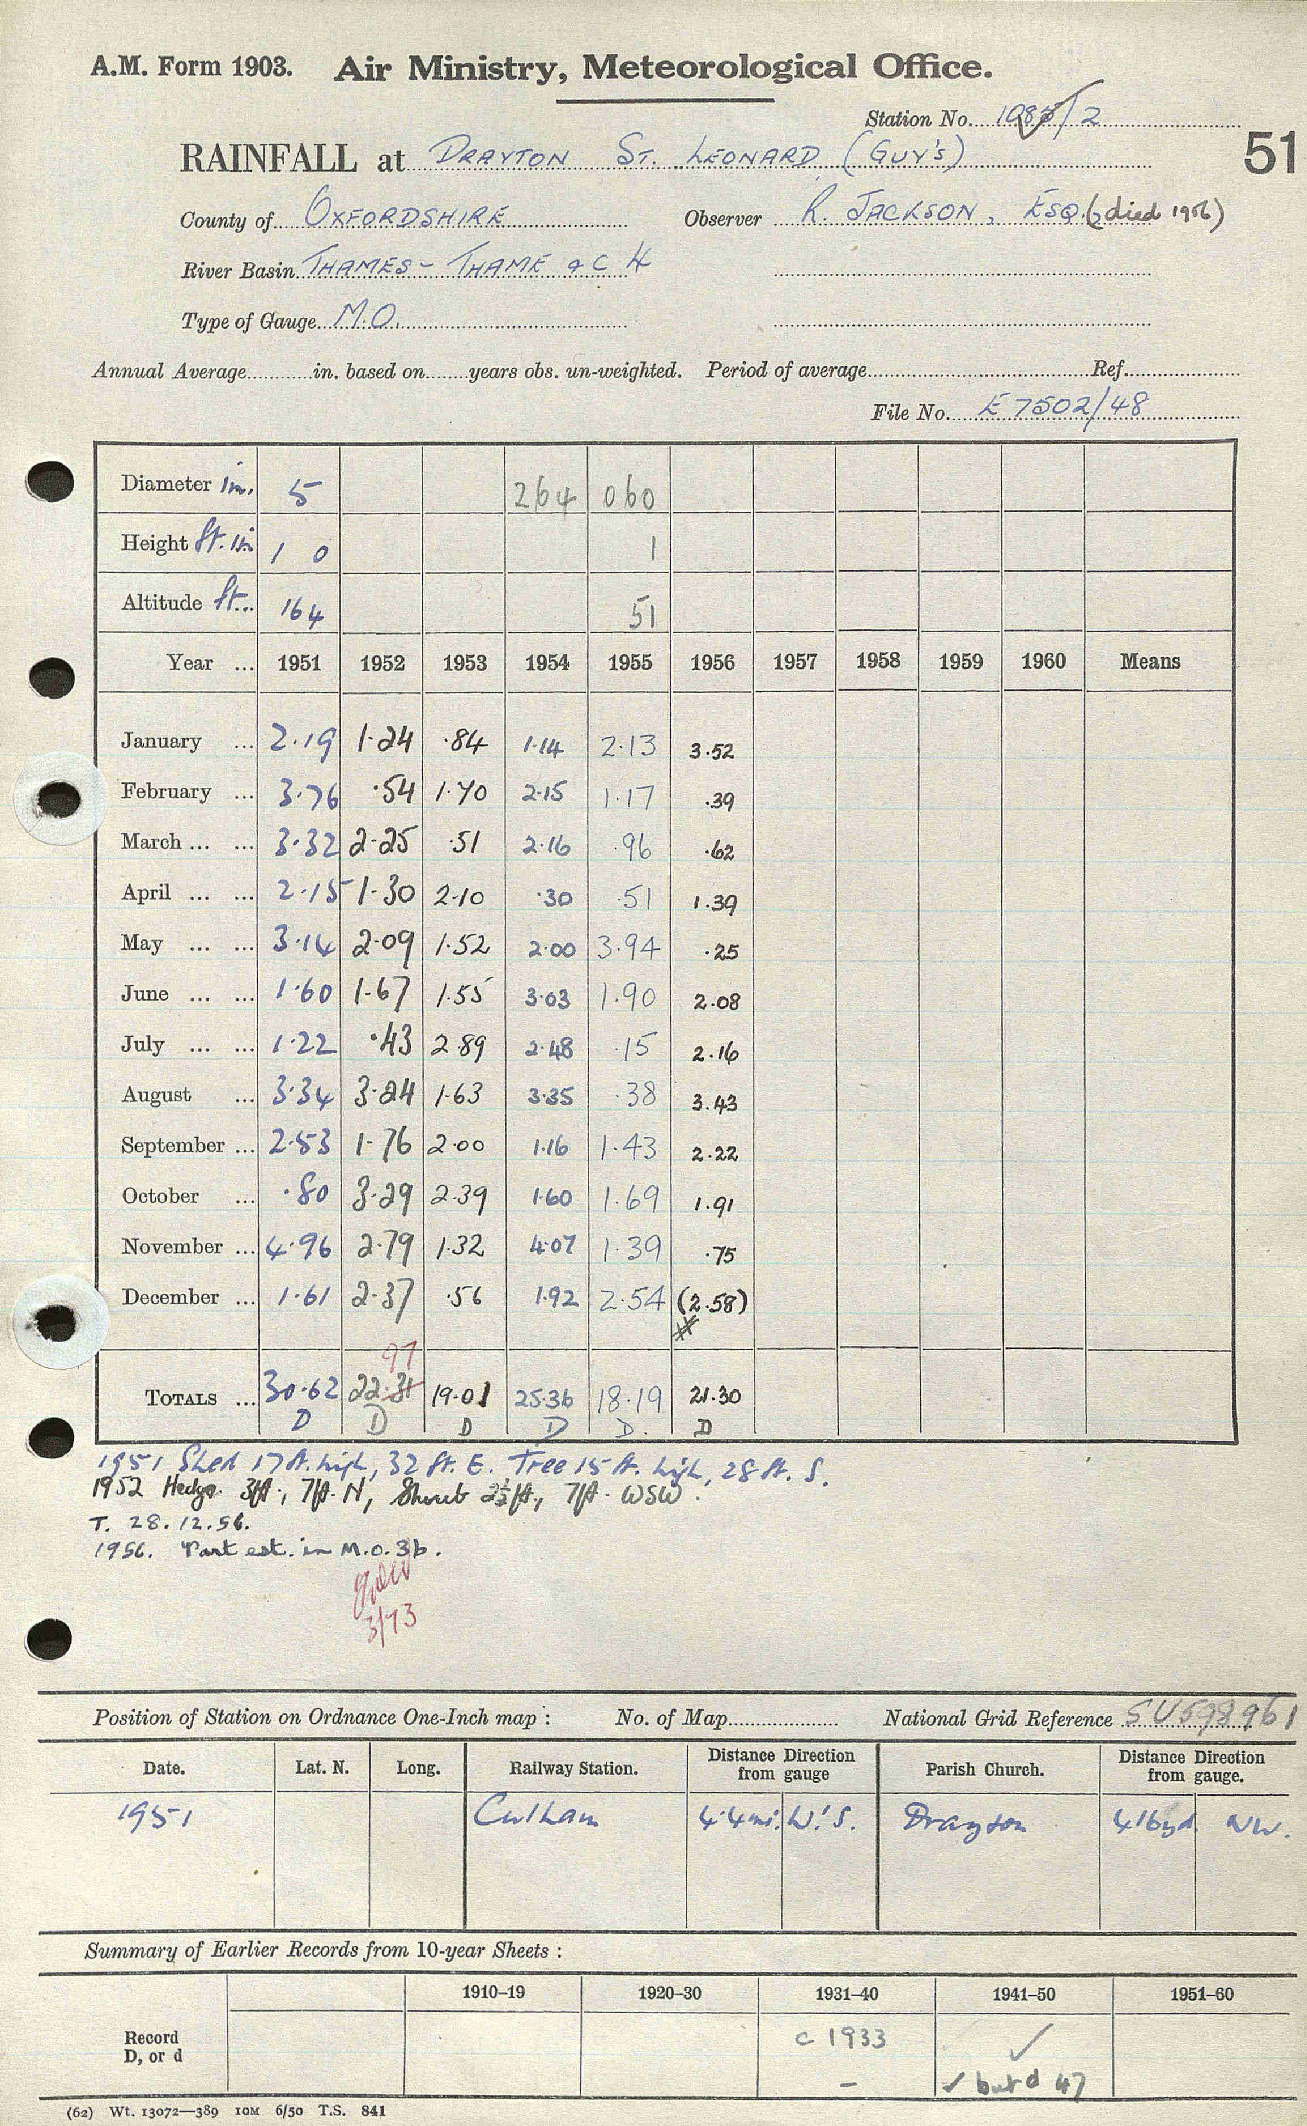 A.M. Form 1903. Air Ministry, Meteorological Office.
Station No. 1085/2
RAINFALL at DRAYTON ST. LEONARD (GUY'S) 51
County of OXFORDSHIRE Observer R. JACKSON, ESQ. (died 1956)
River Basin THAMES - THAME &C 4
Type of Gauge M.O.
Annual Average in. based on years obs. un-weighted. Period of average Ref.
File No. E 7502/48
Diameter in. 5 264 060
Height ft. in 1 0 1
Altitude ft. 164 51
Year ... 1951 1952 1953 1954 1955 1956 1957 1958 1959 1960 Means
January ... 2.19 1.24 .84 1.14 2.13 3.52
February ... 3.76 .54 1.70 2.15 1.17 .39
March ... ... 3.32 2.25 .51 2.16 .96 .62
April ... ... 2.15 1.30 2.10 .30 .51 1.39
May ... ... 3.14 2.09 1.52 2.00 3.94 .25
June ... ... 1.60 1.67 1.55 3.03 1.90 2.08
July ... ... 1.22 .43 2.89 2.48 .15 2.16
August ... 3.34 3.24 1.63 3.35 .38 3.43
September ... 2.53 1.76 2.00 1.16 1.43 2.22
October ... .80 3.29 2.39 1.60 1.69 1.91
November ... 4.96 2.79 1.32 4.07 1.39 .75
December ... 1.61 2.37 .56 1.92 2.54 (2.58)
97
TOTALS ... 30.62 22.31 19.01 25.36 18.19 21.30
D D D D D. D
1951 Shed 17 ft. high, 32 ft. E. Tree 15 ft. high, 28 ft. S.
1952 Hedge 3ft, 7ft N, Shrub 2½ft, 7ft. WSW.
T. 28.12.56.
1956. Part est. in M.O. 3b.
3/73
Position of Station on Ordnance One-Inch map : No. of Map National Grid Reference SU598961
Date. Lat. N. Long. Railway Station. Distance Direction from gauge Parish Church. Distance Direction from gauge.
1951 Culham 4.4 mi. W'S. Drayton 416yd NW.
Summary of Earlier Records from 10-year Sheets :
1910–19 1920–30 1931–40 1941–50 1951–60
Record c 1933 ✓
D, or d – ✓ but d 47
(62) Wt. 13072—389 10M 6/50 T.S. 841